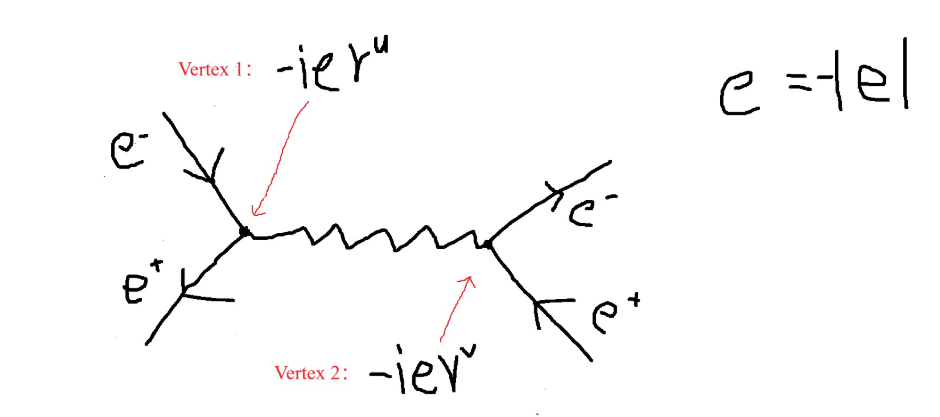 Vertex 1: -ieγ^u
e = -|e|
e^-
e^-
e^+
e^+
Vertex 2: -ieγ^ν